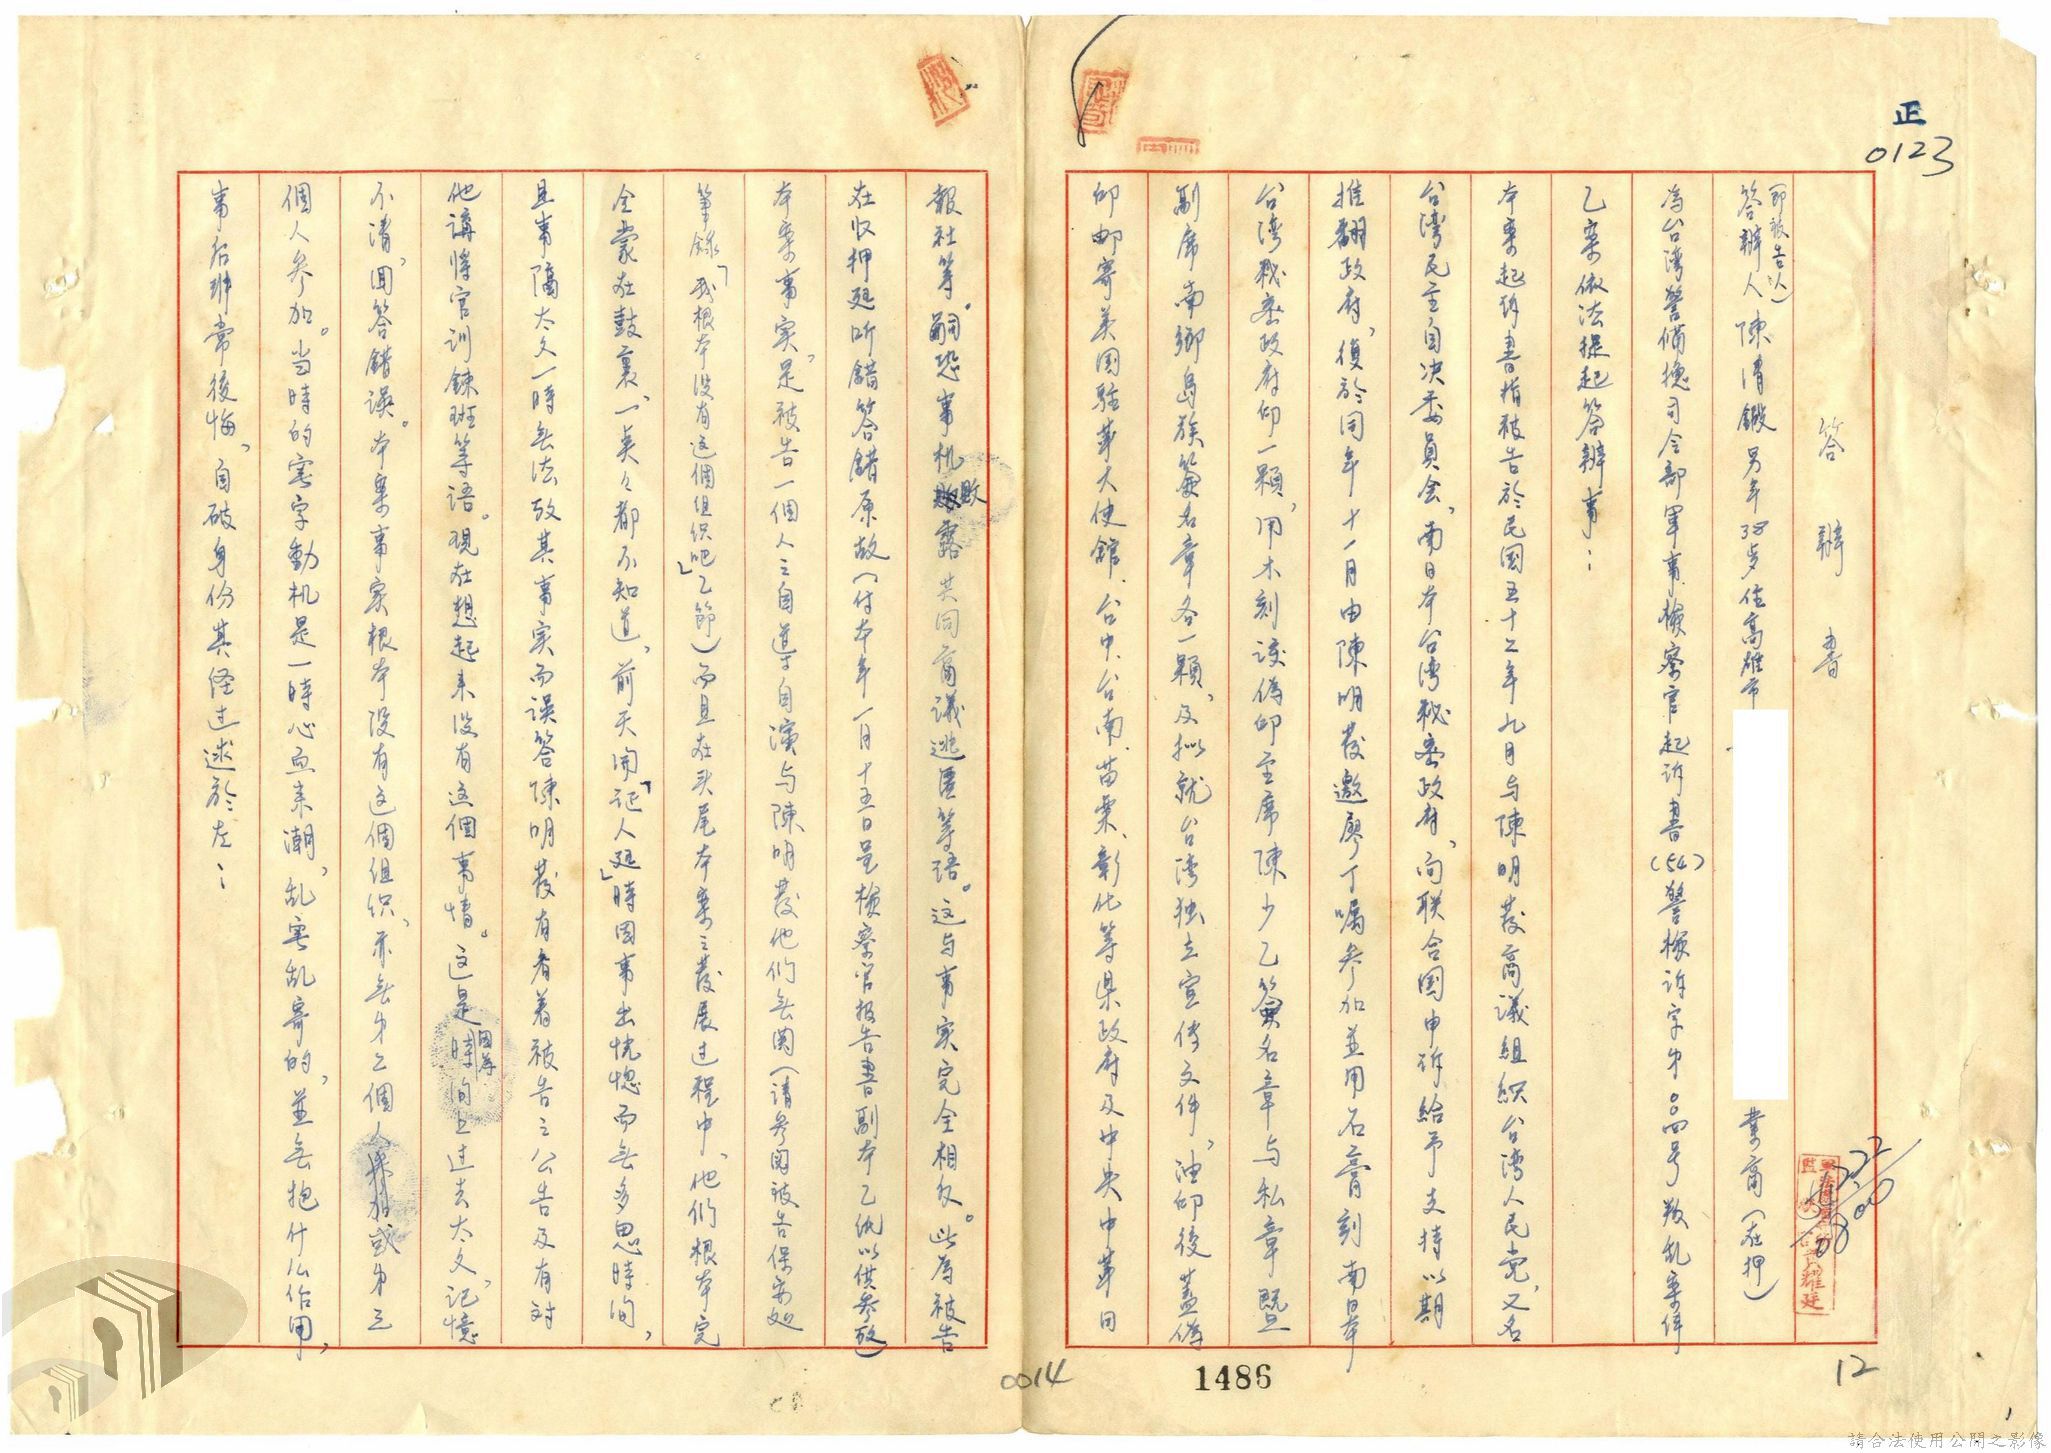 正
0123
答辯書
(即被告人)
答辯人 陳清鍛 男年38歲住高雄市 業商(在押)
為台湾警備總司令部軍事檢察官起訴書(54)警檢訴字第〇〇四号叛乱案件
乙案依法提起答辯事:
本案起訴書指被告於民国五十二年九月与陳明發商議組織台湾人民党,又名
台湾民主自决委員会,南日本台湾秘密政府,向联合国申訴給予支持以期
推翻政府,復於同年十一月由陳明發邀廖丁嘱参加並用石膏刻南日本
台湾秘密政府印一顆,用木刻該偽印主席陳少乙簽名章与私章暨
副席南鄉島族簽名章各一顆,及拟就台湾独立宣传文件,油印後蓋偽
印邮寄美国駐華大使館、台中、台南、苗栗、彰化等県政府及中央中華日
報社等。嗣恐事机敗露共同商議逃匿等語。这与事实完全相反。此為被告
在收押廷所錯答錯原故(付本年一月十五日呈檢察官报告書副本乙纸以供参攷)
本案事实,是被告一個人之自導自演与陳明發他們無関(請参閱被告保安処
筆錄「我根本没有这個组织吧」乙節)而且在头尾本案之發展过程中,他們根本完
全蒙在鼓裏,一点々都不知道,前天開「証人廷」時因事出恍惚而無多思時间,
且事隔太久一時無法攷其事实而误答陳明發有看着被告之公告及有对
他講將官訓鍊班等語。現在想起来没有这個事情。这是因為時间上过去太久,记憶
不清,回答錯误。本案事实根本没有这個组织,亦無第二個人参加或第三
個人参加。当時的寄字動机是一時心血来潮,乱寄乱寄的,並無抱什么作用,
事后非常後悔,自破身份其经过逑於左:
0014
1486
12
請合法使用公開之影像